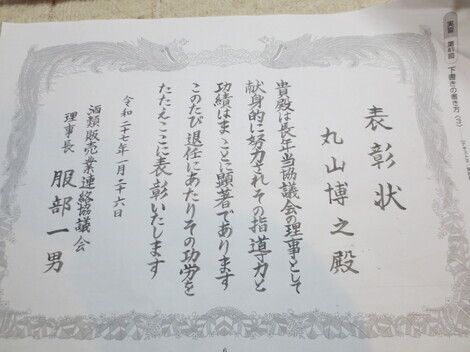 実習 下書きの書き方
表彰状
丸山博之殿
貴殿は長年当協議会の理事として
献身的に努力されその指導力と
功績はまことに顕著であります
このたび退任にあたりその功労を
たたえここに表彰いたします
令和二十七年一月二十六日
酒類販売業連絡協議会
理事長 服部一男
6